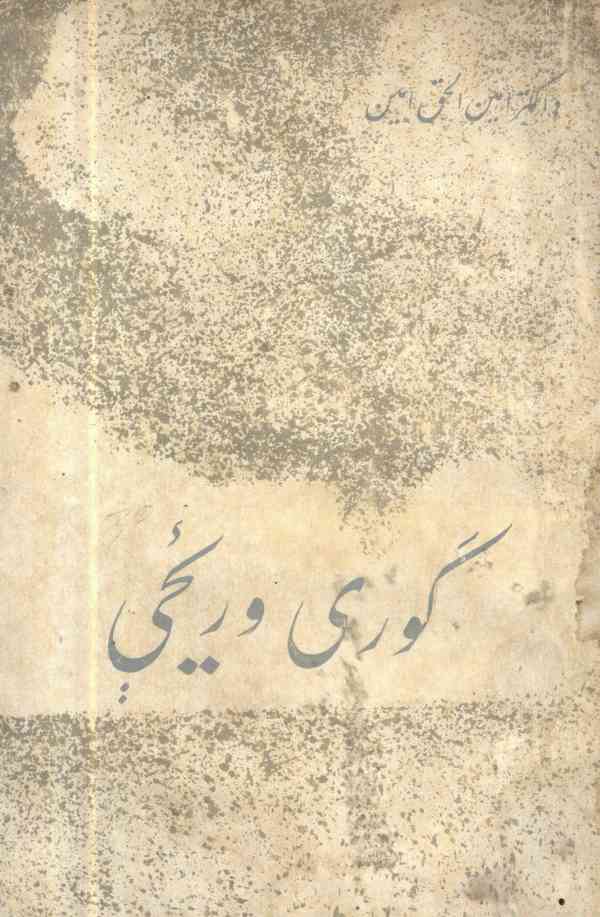 ډاکټر امین الحق امین
گوری وریځې